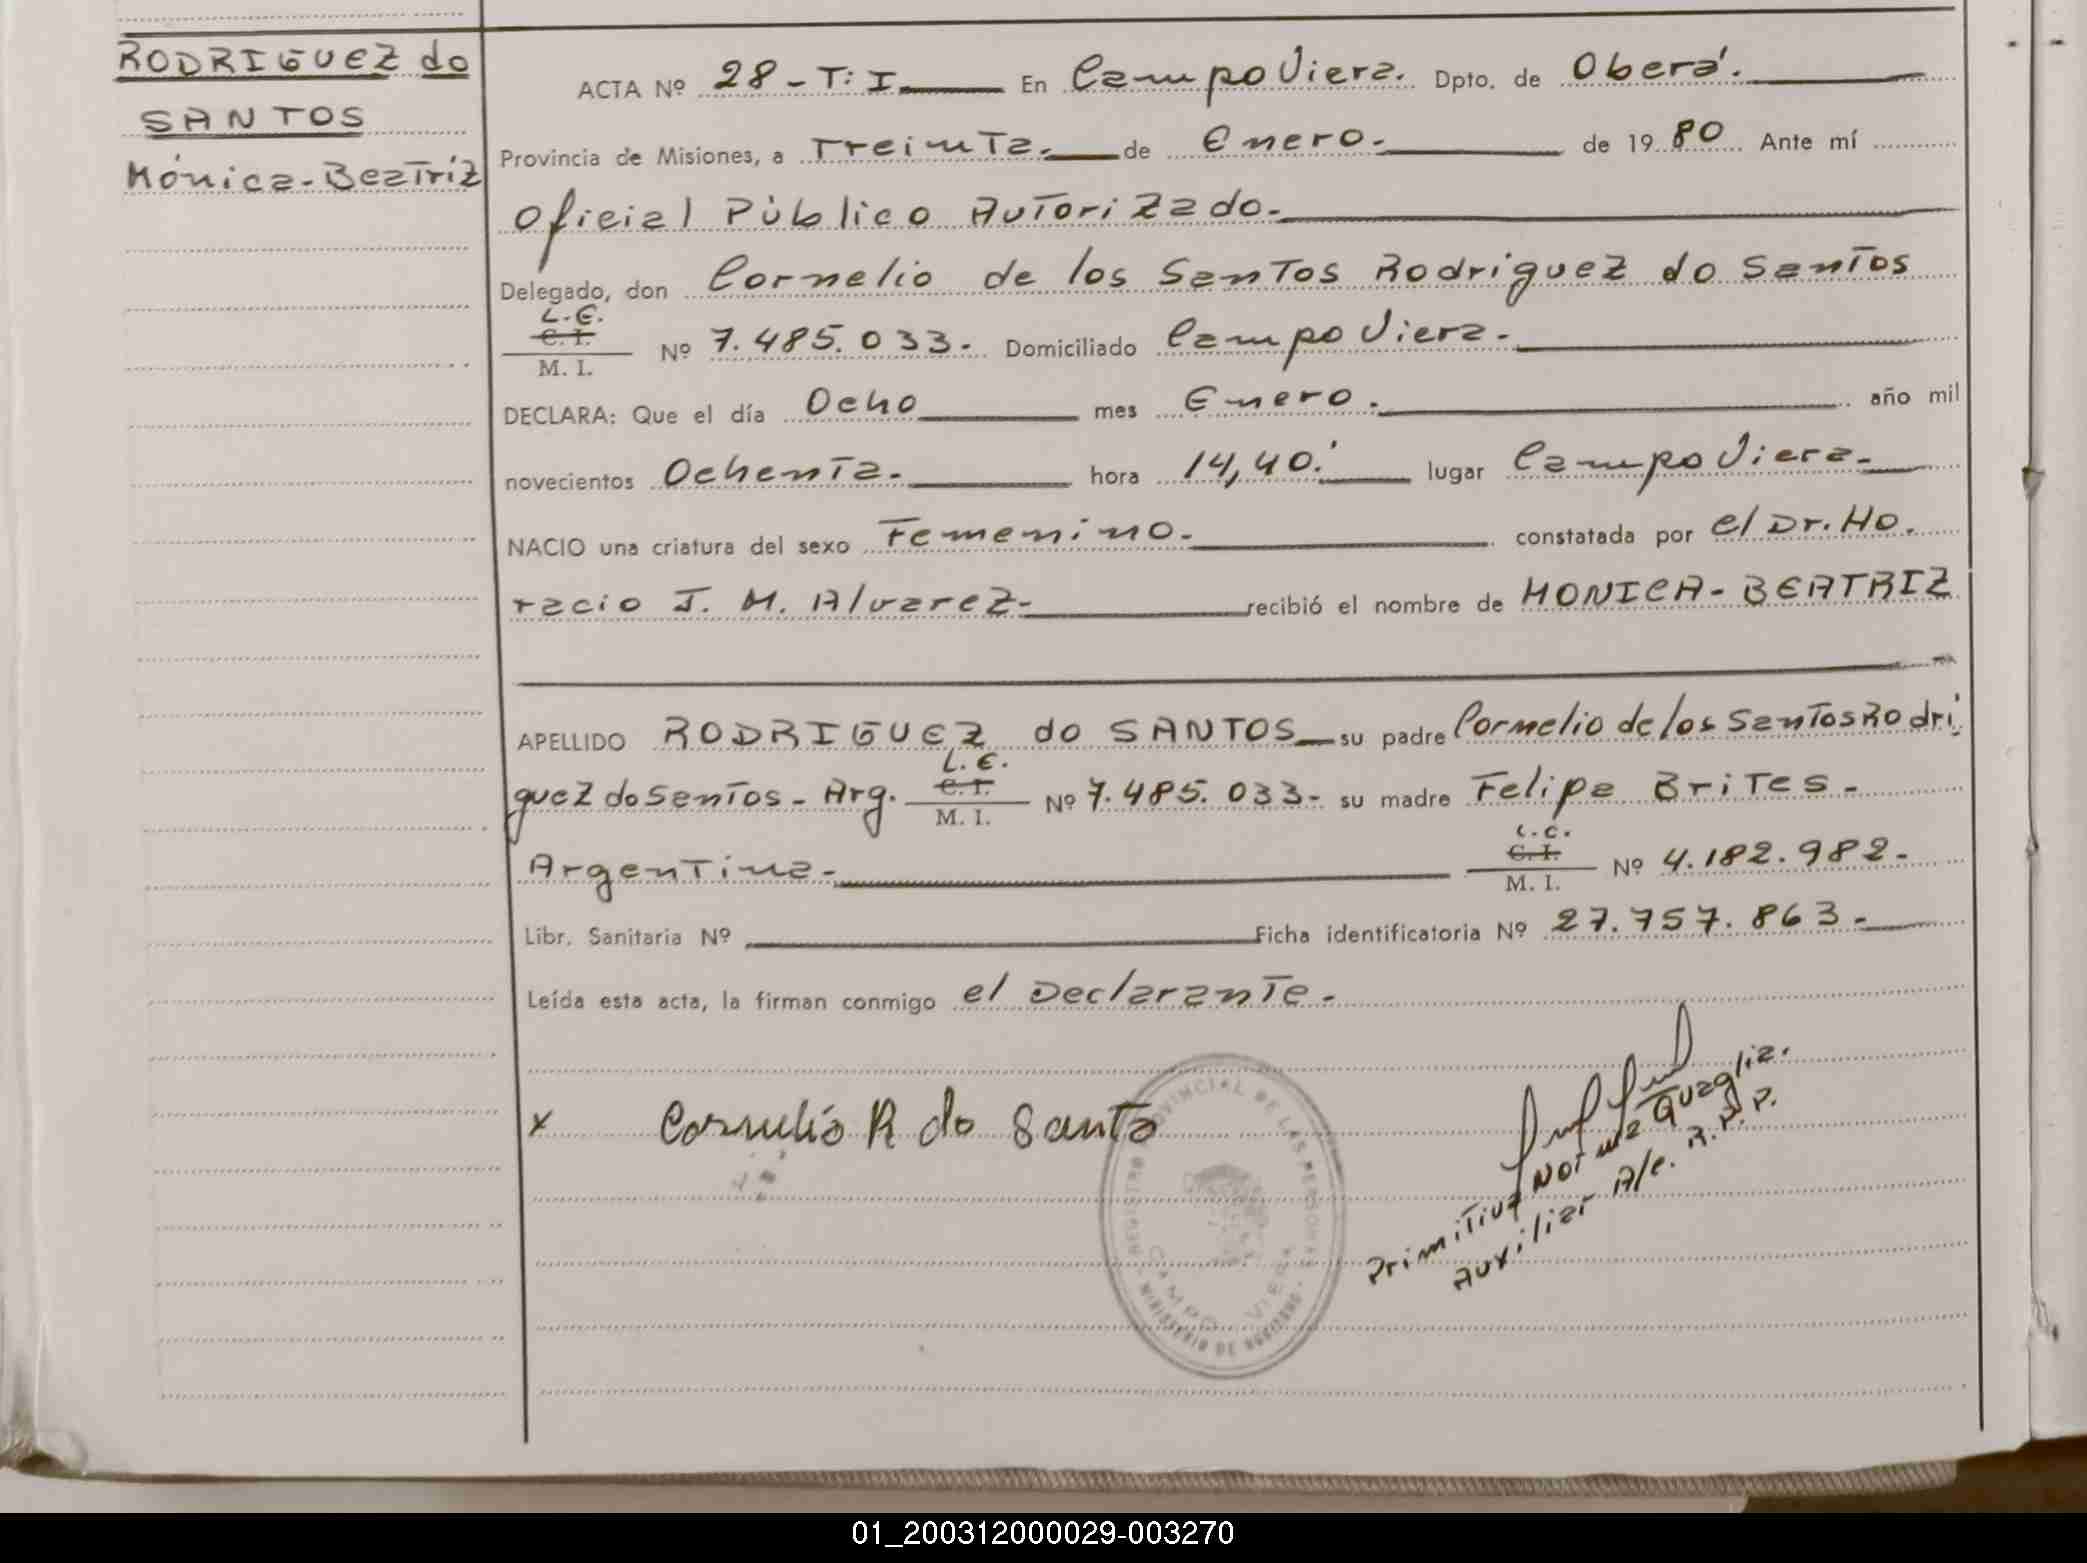 RODRIGUEZ do
SANTOS
Mónica-Beatriz
ACTA Nº 28-T: I En Campo Viera. Dpto. de Oberá.
Provincia de Misiones, a Treinta. de Enero. de 1980 Ante mí
Oficial Público Autorizado.
Delegado, don Cornelio de los Santos Rodriguez do Santos
L.E.
C. I.
M. I. Nº 7.485.033. Domiciliado Campo Viera.
DECLARA: Que el día Ocho mes Enero. año mil
novecientos Ochenta. hora 14,40. lugar Campo Viera.
NACIO una criatura del sexo Femenino. constatada por el Dr. Ho.
racio J. M. Alvarez- recibió el nombre de MONICA-BEATRIZ
APELLIDO RODRIGUEZ do SANTOS su padre Cornelio de los Santos Rodri
guez do Santos - Arg. L.E. C. I. M. I. Nº 7.485.033- su madre Felipa Brites -
Argentina- L.C. C. I. M. I. Nº 4.182.982-
Libr. Sanitaria Nº Ficha identificatoria Nº 27.757.863-
Leída esta acta, la firman conmigo el Declarante-
x Cornelio R do Santo
Primitiva Norma Quaglia.
Auxiliar A/c. R.P.P.
REGISTRO PROVINCIAL DE LAS PERSONAS
CAMPO VIERA
MINISTERIO DE GOBIERNO
01_200312000029-003270